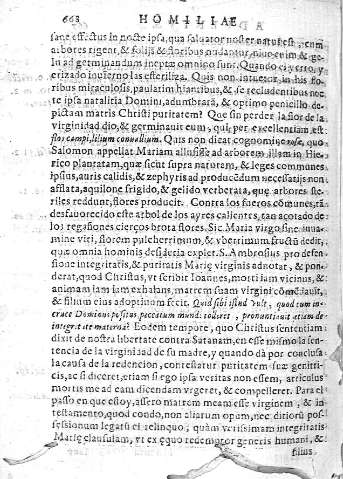 668 HOMILIAE
sane effectus in nocte ipsa, qua saluator noster natus est, cum
arbores rigent, & folijs & floribus nudantur, niue enim & ge-
lu ad germinandum ineptæ omnino sunt. Quando el yerto, y
erizado inuierno las esteriliza. Quis non intuetur, in his flo
ribus miraculosis, paulatim hiantibus, & se recludentibus noc
te ipsa natalitia Domini, adumbratã, & optimo penicillo de-
pictam matris Christi puritatem? Que sin perder la flor de la
virginidad dio, & germinauit eum, qui, per excellentiam, est
flos campi, lilium conuallium. Quis non dicat cognomine rosæ, quo
Salomon appellat Mariam allusisse ad arborem illam in Hie
rico plantatam, quæ sicut supra naturam, & leges communes
ipsius, auris calidis, & zephyris ad producedum necessatijs non
afflata, aquilone frigido, & gelido verberata, quę arbores ste-
riles reddunt, flores producit. Contra los fueros comunes, tã
desfauorecido este arbol de los ayres calientes, tan açotado de
los regañones cierços brota flores. Sic Maria virgo sine iuua-
mine viri, florem pulcherrimum, & vberrimum fructũ dedit,
quæ omnia hominis desideria explet. S. Ambrosius pro defen
sione integritatis, & puritatis Marię virginis adnotat, & pon-
derat, quod Christus, vt scribit Ioannes, morti iam vicinus, &
animam iam iam exhalans, matrem suam virgini cõmẽdauit,
& filium eius adoptiuum fecit. Quid sibi istud vult, quod cum in-
cruce Dominus positus, peccatum mundi tolleret, pronuntiauit etiam de
integritate materna? Eodem tempore, quo Christus sententiam
dixit de nostra libertate contra Satanam, en esse mismo la sen-
tencia de la virginidad de su madre, y quando dà por conclusa
la causa de la redencion, contestatur puritatem suæ genitri-
cis, ac si diceret, etiam si ego ipsa veritas non essem, articulus
mortis me ad eam dicendam vrgeret, & compelleret. Para el
passo en que estoy, assero matrem meam esse virginem, & in
testamento, quod condo, non aliarum opum, nec ditiorũ pos
sessionem legatũ ei relinquo; quàm verissimam integritatis
Marię clausulam, vt ex quo redemptor generis humani, &
filius